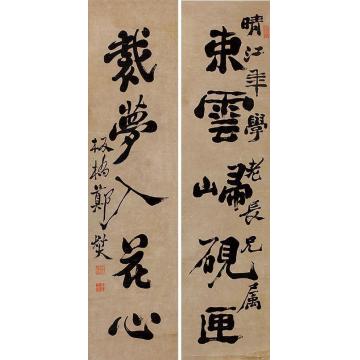 晴江年學老長兄属
束雲歸硯匣
裁夢入花心
板橋鄭燮